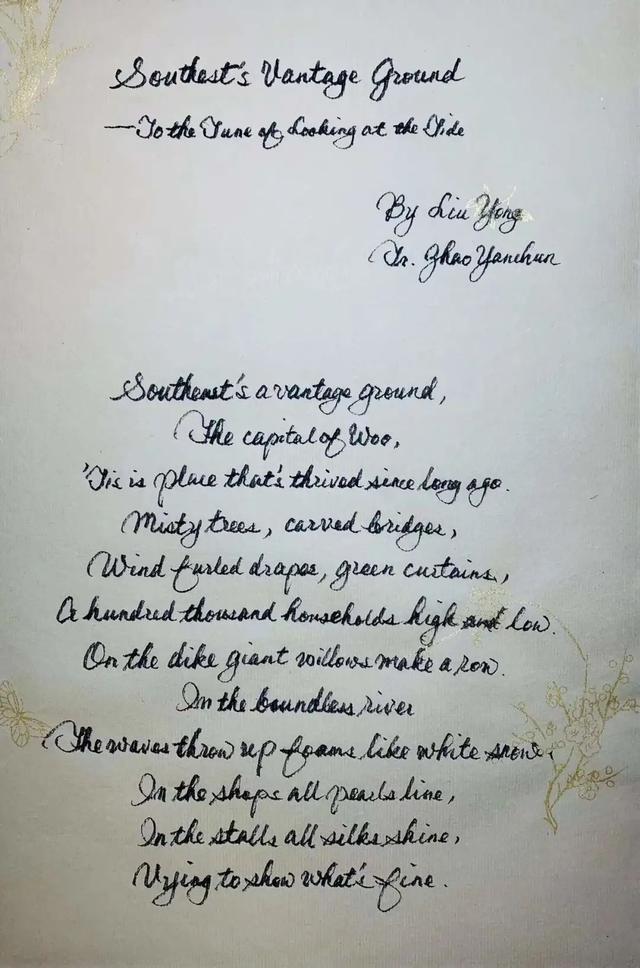 Southest's Vantage Ground
—To the Tune of Looking at the Tide
By Liu Yong
Tr. Zhao Yanchun
Southeast's a vantage ground,
The capital of Woo,
'Tis is place that's thrived since long ago.
Misty trees, carved bridges,
Wind furled drapes, green curtains,
A hundred thousand households high and low.
On the dike giant willows make a row.
In the boundless river
The waves throw up foams like white snow.
In the shops all pearls line,
In the stalls all silks shine,
Vying to show what's fine.